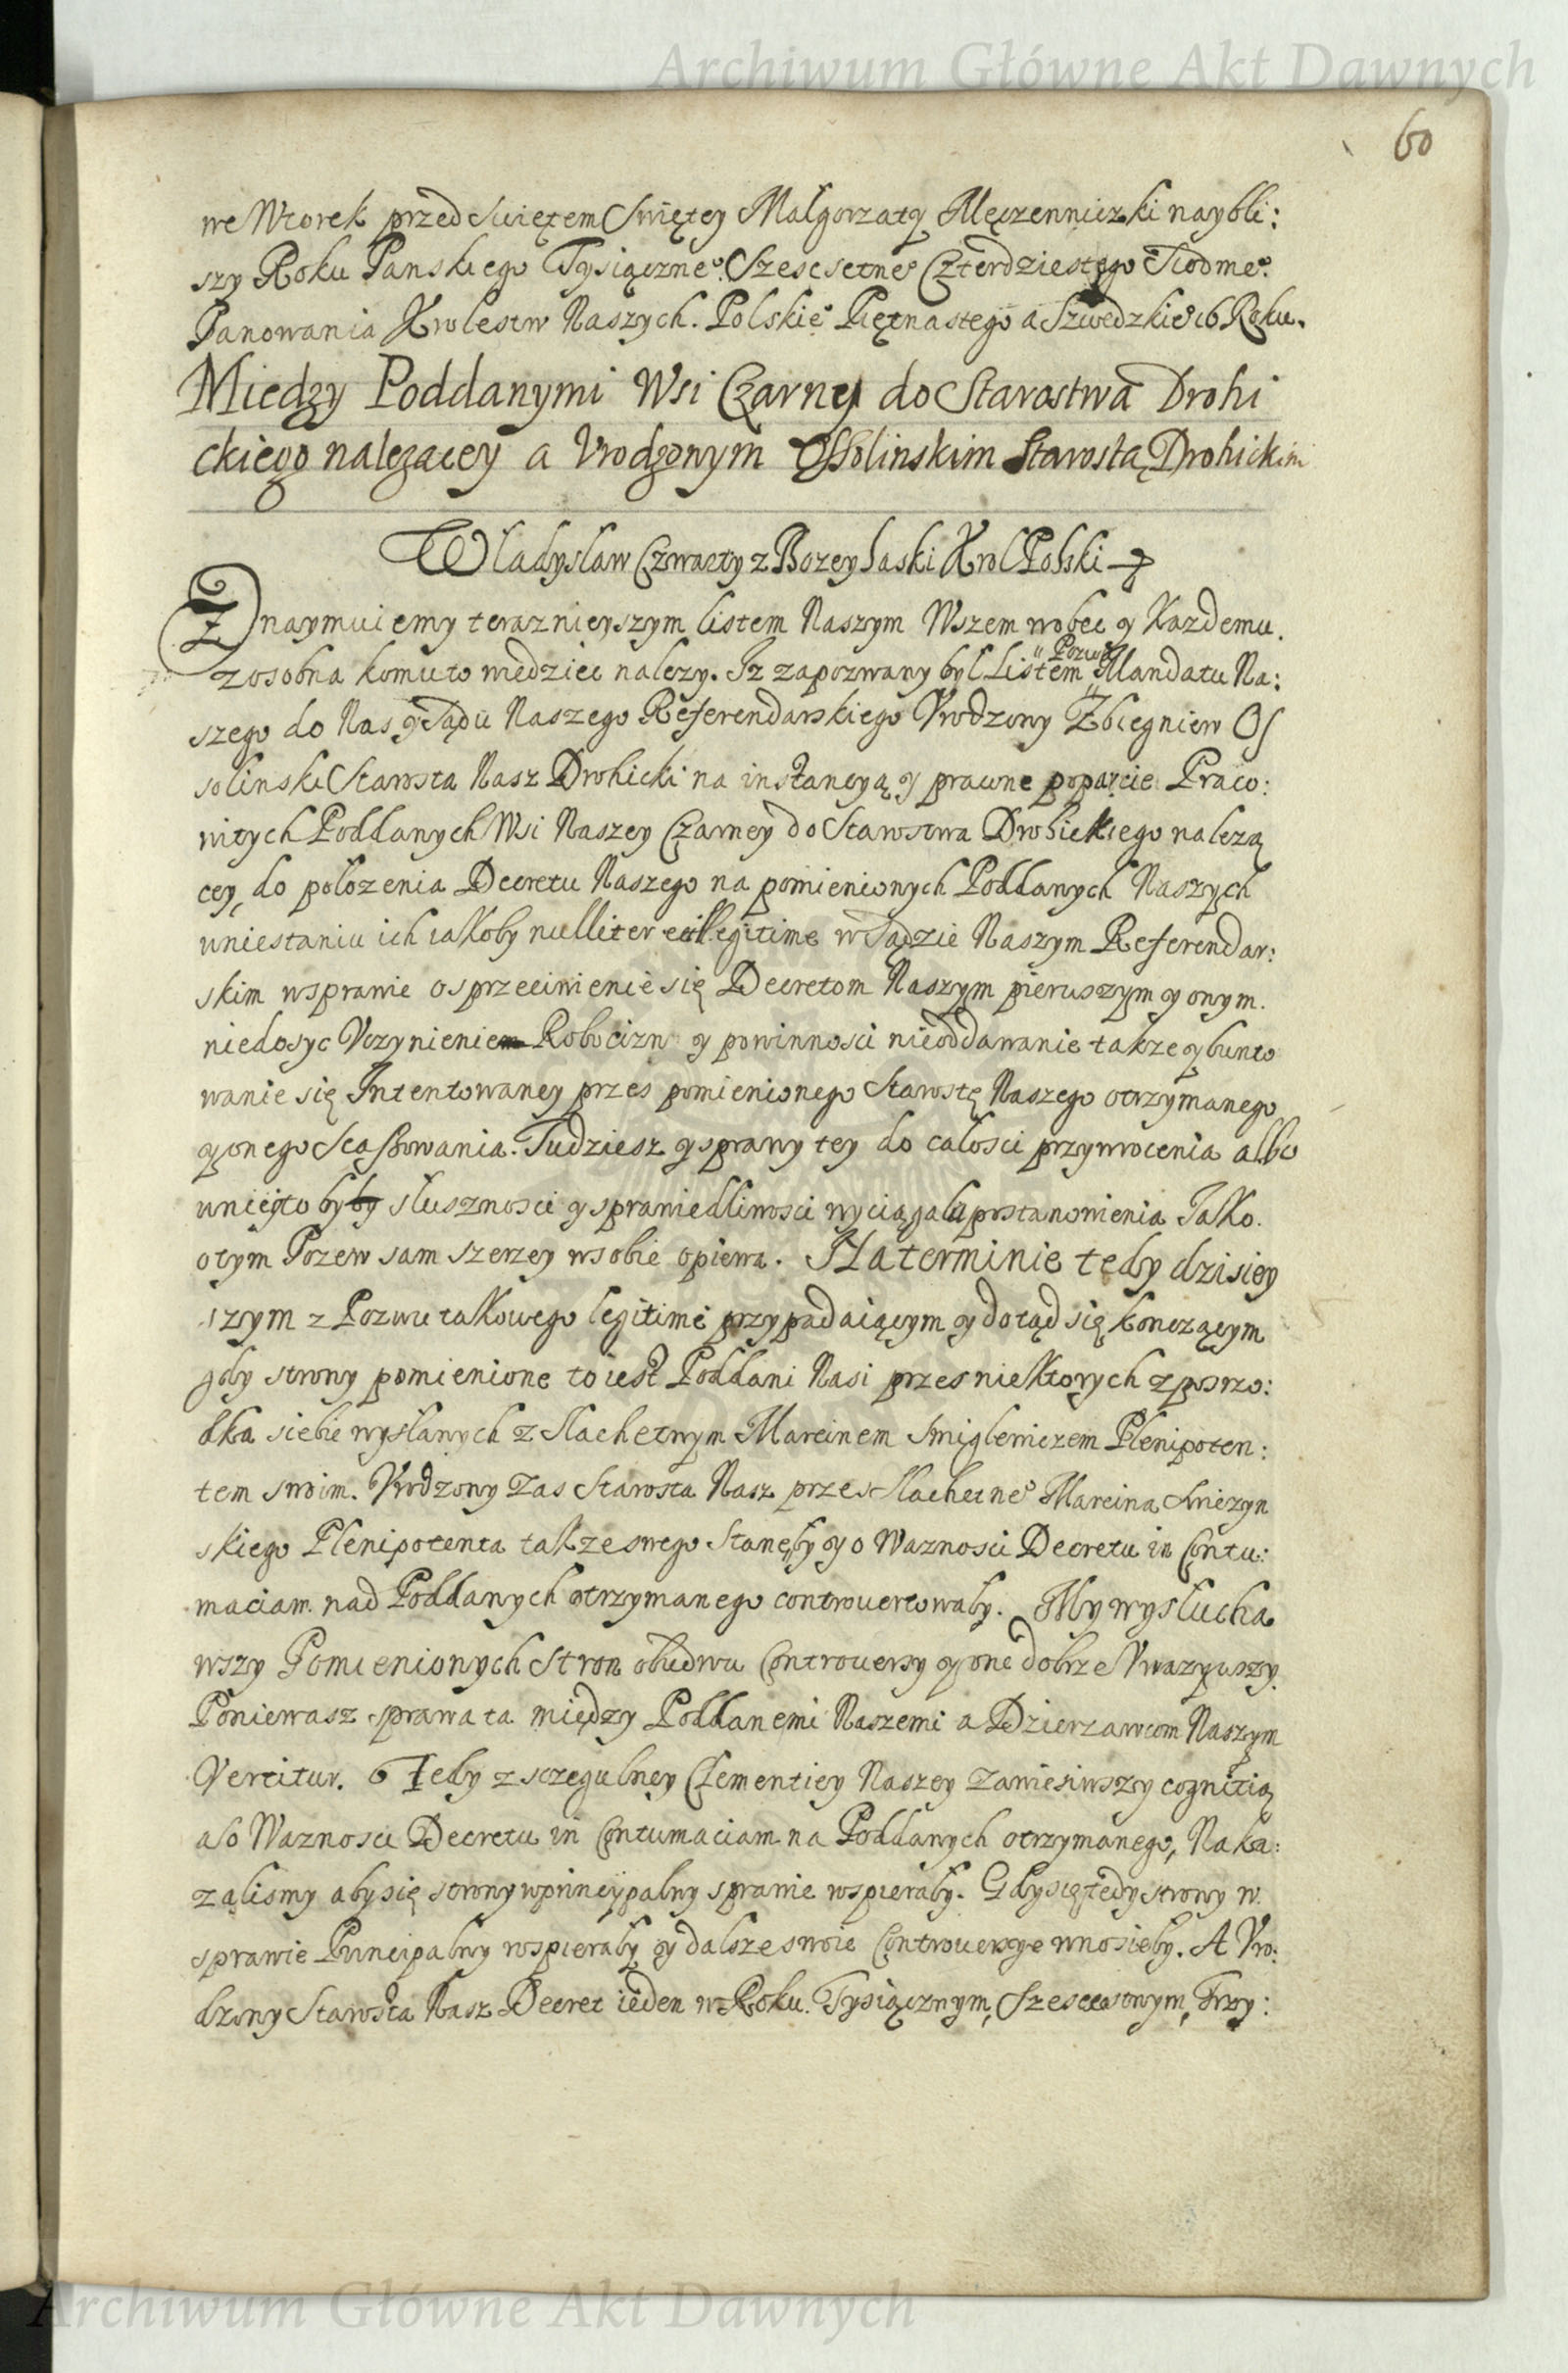 Archiwum Główne Akt Dawnych
60
we Wtorek przed Swiętem Swiętey Malgorzaty Męczenniczki naybli:
szy Roku Panskiego Tysiączneo. Szescsetneo Czterdziestego Siodmeo.
Panowania Krolestw Naszych. Polskieo Piętnastego a Szwedzkieo 16 Roku.
Miedzy Poddanymi Wsi Czarney do Starostwa Drohi
ckiego nalezacey a Vrodzonym Ossolinskim Starostą Drohickim
Wladyslaw Czwarty z Bozey Laski Krol Polski
Znaymuiemy teraznieyszym listem Naszym Wszem wobec y Kazdemu.
zosobna komu to wiedziec nalezy. Iz zapozwany byl Listem Pozwu Mandatu Na:
szego do Nas y Sądu Naszego Referendarskiego Vrodzony Zbigniew Os
solinski Starosta Nasz Drohicki na instancyą y prawne poparcie Praco:
witych Poddanych Wsi Naszey Czarney do Starostwa Drohickiego nalezą
cey, do polozenia Decretu Naszego na pomienionych Poddanych Naszych
wniestaniu ich iakoby nulliter et illegitime w Sądzie Naszym Referendar:
skim wsprawie o sprzeciwienie się Decretom Naszym pierwszym y onym.
niedosyc Vczynienie Robocizn y powinnosci nieoddawanie takze y bunto
wanie się Intentowaney przes pomienionego Starostę Naszego otrzymanego
y onego Scassowania. Tudziesz y sprawy tey do calosci przywrocenia albo
wniey co by by slusznosci y sprawiedliwosci wyciągala postanowienia Jako.
otym Pozew sam szerzey wsobie opiewa. Na terminie tedy dzisiey
szym z Pozwu takowego legitime przypadaiącym y dotąd się konczącym
gdy strony pomienione to iest Poddani Nasi przes niektorych z posrzo:
dka siebie wyslanych z Slachetnym Marcinem Smiglewiczem Plenipoten:
tem swoim. Vrodzony zas Starosta Nasz przes Slachetneo Marcina
skiego Plenipotenta takze swego Stanęly y o Waznosci Decretu in Contu:
maciam nad Poddanych otrzymanego controvertowaly. My wyslucha
wszy Pomienionych Stron obudwu Controversy y one dobrze Vwazywszy.
Poniewasz sprawa ta między Poddanemi Naszemi a Dzierzawcom Naszym
Vertitur. Tedy z sczegulney Clementiey Naszey zawiesiwszy cognitią
a o Waznosci Decretu in Contumaciam na Poddanych otrzymanego, Naka:
zalismy aby się strony wprincypalny sprawie wspieraly. Gdy się tedy strony w
sprawie Principalny wspieraly y dalsze swoie Controversye wnosiely. A Vro:
dzony Starosta Nasz Decret ieden w Roku. Tysiącznym, Szescsetnym, Trzy:
Archiwum Główne Akt Dawnych